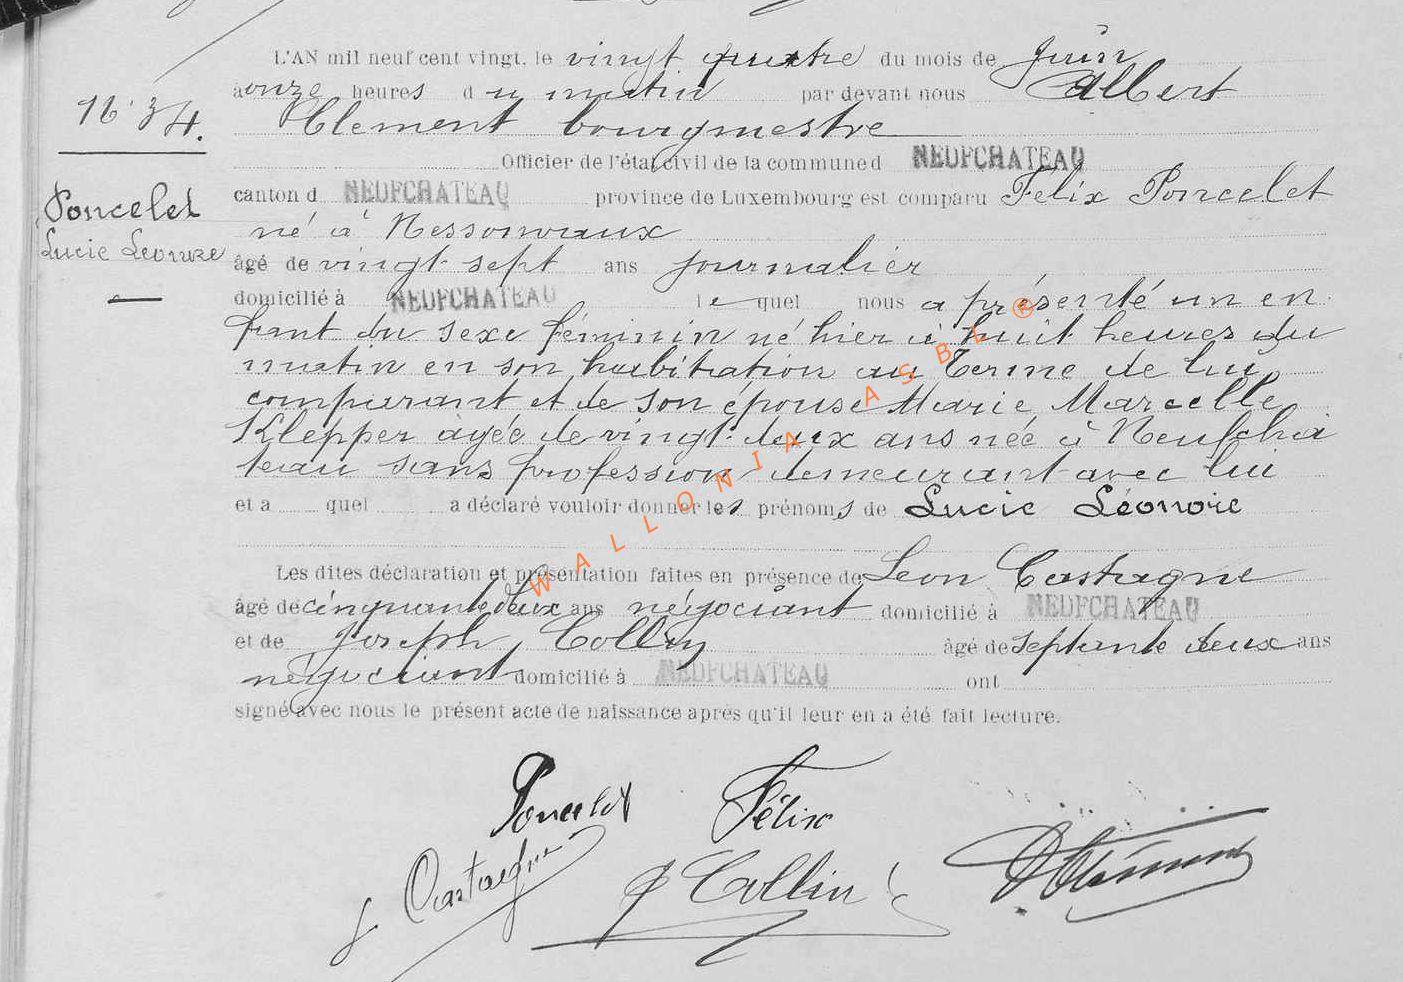 L'AN mil neuf cent vingt, le vingt quatre du mois de Juin
à onze heures du matin par devant nous Albert
Clement bourgmestre
Officier de l'état civil de la commune d NEUFCHATEAU
N° 34.
canton d NEUFCHATEAU province de Luxembourg est comparu Félix Poncelet
Poncelet
Lucie Léonore
né à Nessonvaux
âgé de vingt-sept ans journalier
domicilié à NEUFCHATEAU lequel nous a présenté un en
fant du sexe féminin né hier à huit heures du
matin en son habitation au Terme de lui
comparant et de son épouse Marie Marcelle
Klepper agée de vingt-deux ans née à Neufchâ
teau sans profession demeurant avec lui
et a quel a déclaré vouloir donner les prénoms de Lucie Léonore
Les dites déclaration et présentation faites en présence de Leon Castagne
âgé de cinquante deux ans négociant domicilié à NEUFCHATEAU
et de Joseph Collin âgé de septante deux ans
négociant domicilié à NEUFCHATEAU ont
signé avec nous le présent acte de naissance après qu'il leur en a été fait lecture.
Poncelet Félix
Castagne
J Collin
WALLONIA ASBL ®